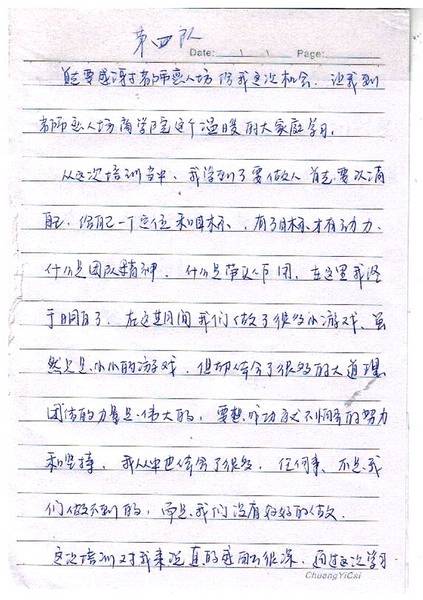 第四队
Date: \ \ Page:
首要感谢老师恋人坊 给我这次机会. 让我到
老师恋人坊商学院这个温暖的大家庭学习.
从这次培训当中、我学到了要做人 首先要认清
自己. 给自己一个定位和目标、. 有了目标、才有动力.
什么是团队精神. 什么是带队作用. 在这里我终
于明白了. 在这其间我们做了很多小游戏. 虽
然只是小小的游戏. 但却体会了很多的大道理
团结的力量是伟大的. 要想成功就不懈的努力
和坚持. 我从中也体会了很多. 任何事、不是我
们做不到的, 而是我们没有好好的做.
这次培训对我来说真的感触很深. 通过这次学习
ChuangYiCsi